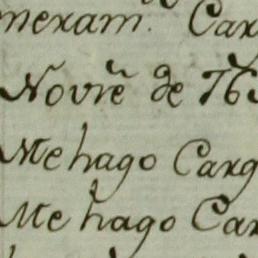 meram. Car
Novre de 163
Me hago Carg
Me hago Car